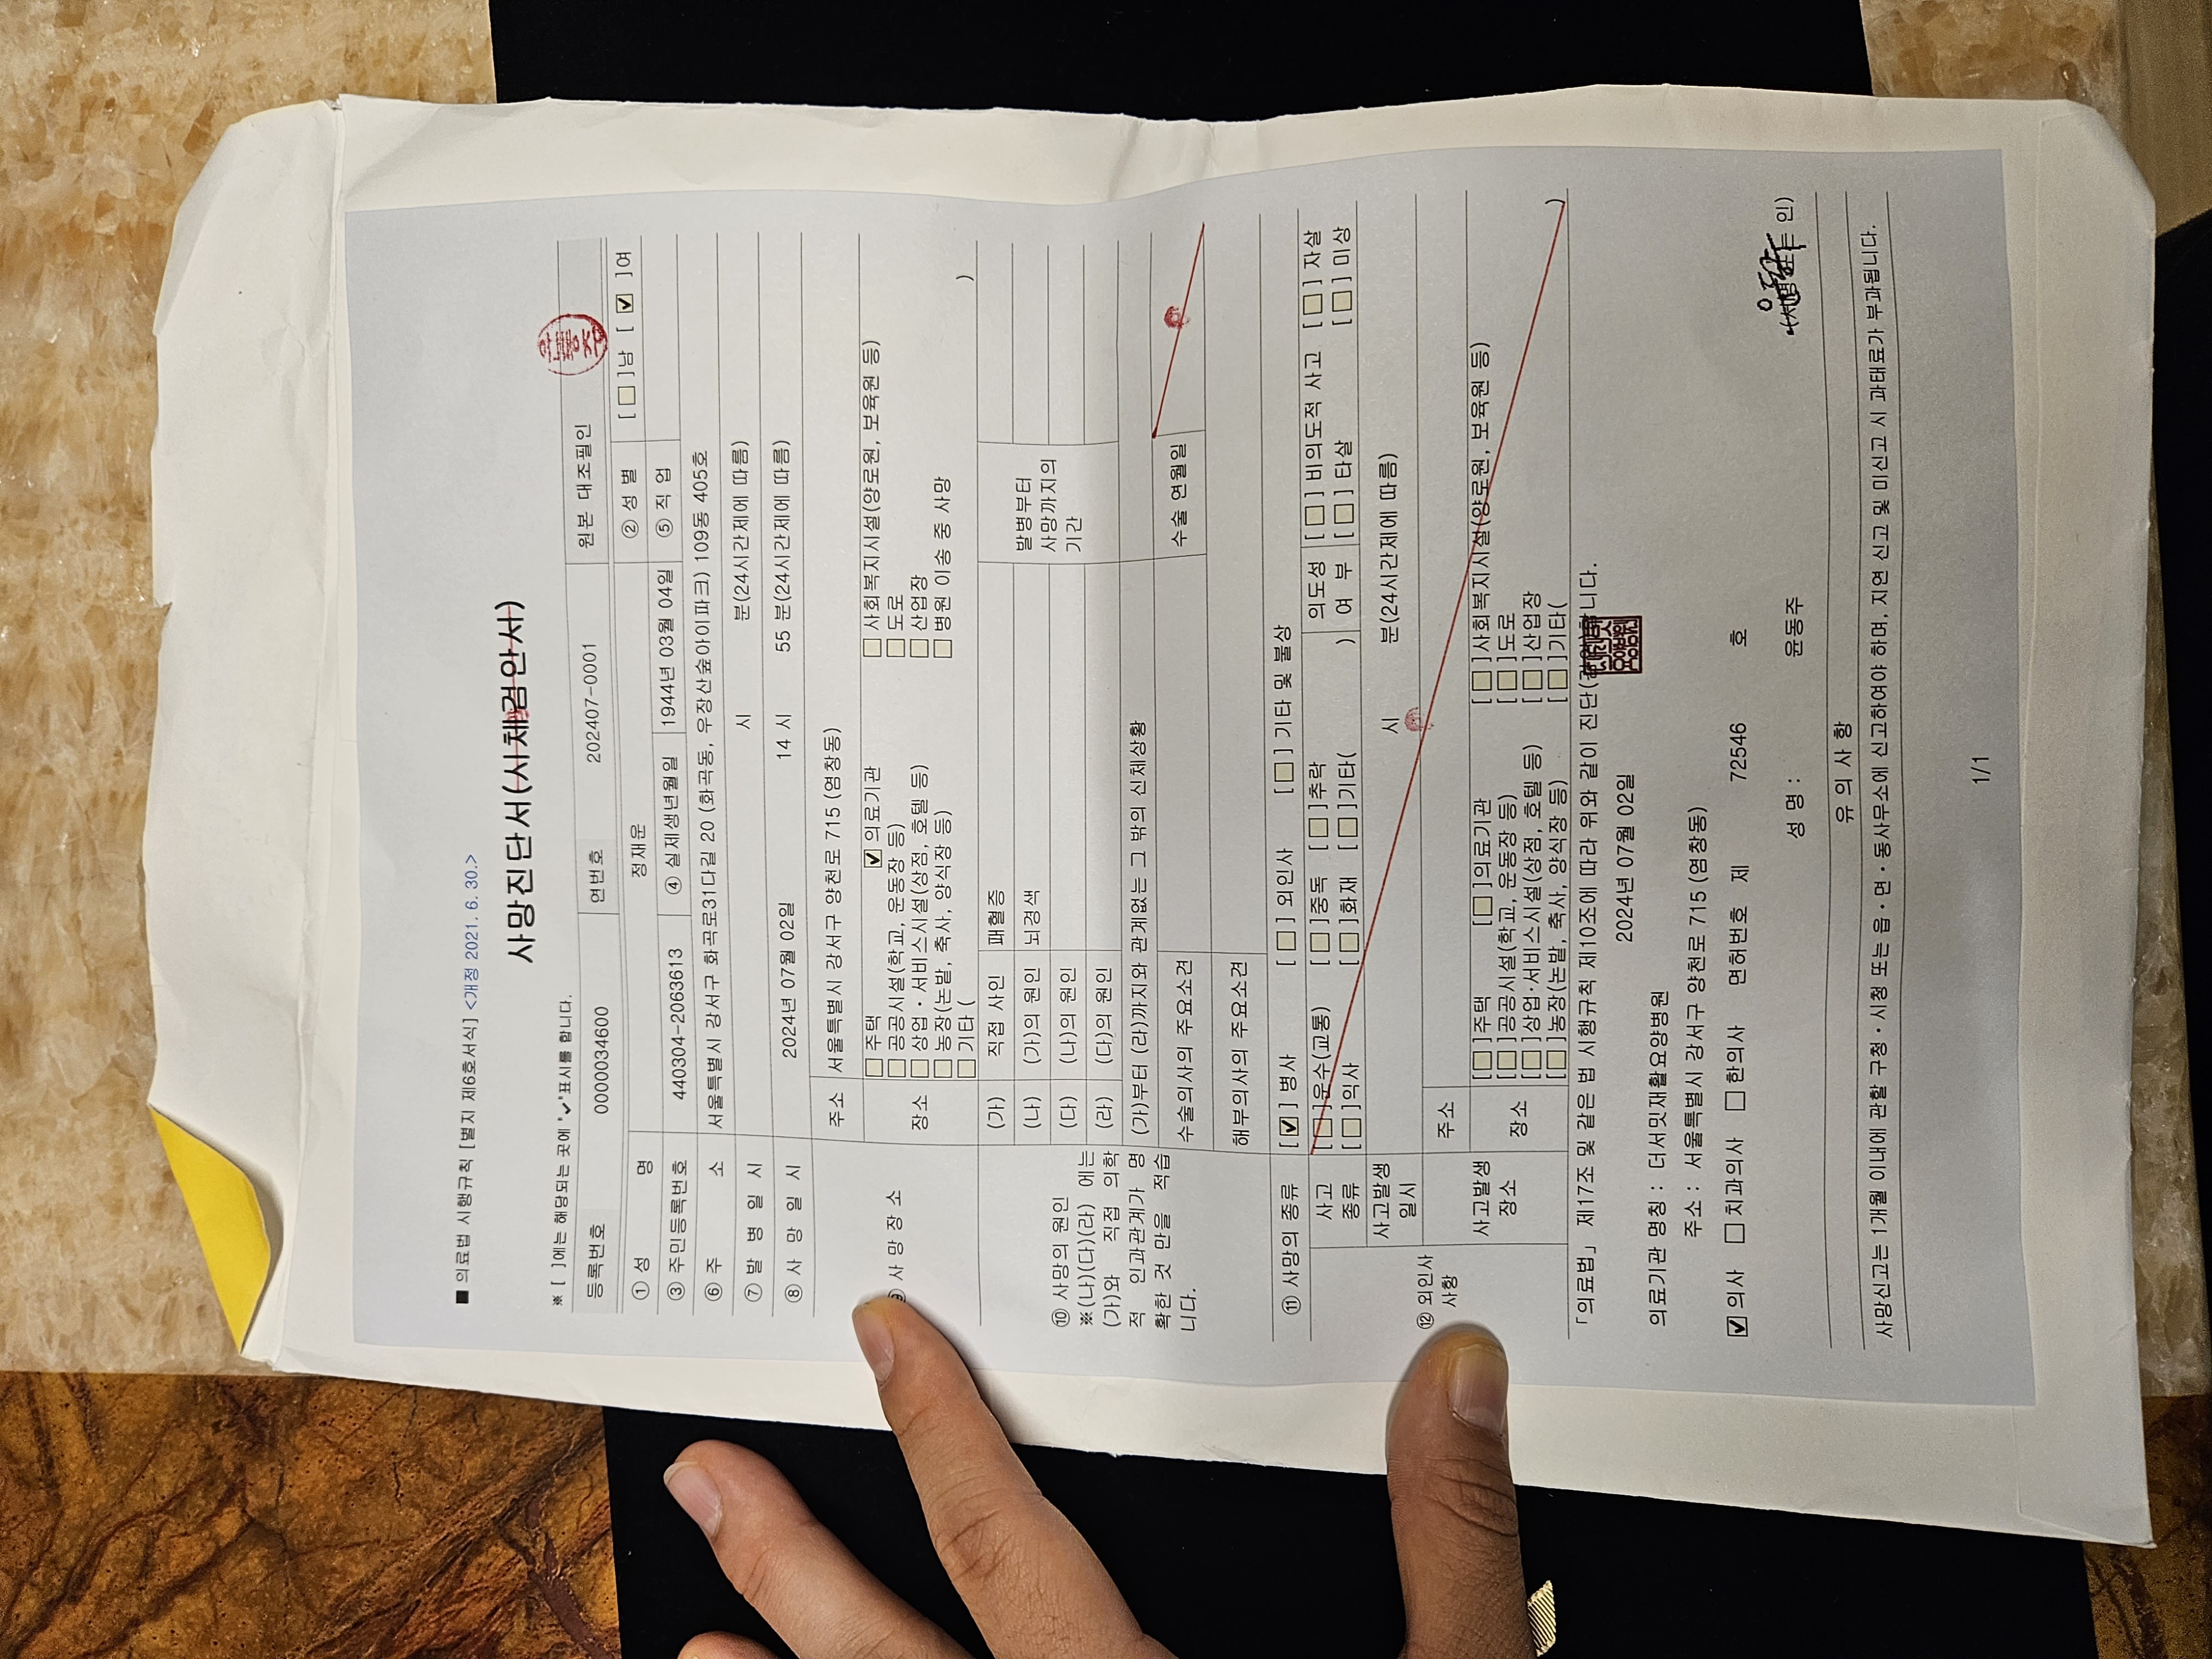 ■ 의료법 시행규칙 [별지 제6호서식] <개정 2021. 6. 30.>
사망진단서(시체검안서)
※ [ ]에는 해당되는 곳에 "✔"표시를 합니다.
등록번호 0000034600 연번호 202407-0001 원본 대조필인
① 성 명 정재운 ② 성 별 [ ]남 [✔]여
③ 주민등록번호 440304-2063613 ④ 실제생년월일 1944년 03월 04일 ⑤ 직 업
⑥ 주 소 서울특별시 강서구 화곡로31다길 20 (화곡동, 우장산숲아이파크) 109동 405호
⑦ 발 병 일 시 시 분(24시간제에 따름)
⑧ 사 망 일 시 2024년 07월 02일 14 시 55 분(24시간제에 따름)
⑨ 사 망 장 소
주소 서울특별시 강서구 양천로 715 (염창동)
장소
□ 주택 ☑ 의료기관 □ 사회복지시설(양로원, 보육원 등)
□ 공공시설(학교, 운동장 등) □ 도로
□ 상업・서비스시설(상점, 호텔 등) □ 산업장
□ 농장(논밭, 축사, 양식장 등) □ 병원 이송 중 사망
□ 기타 ( )
⑩ 사망의 원인
※(나)(다)(라) 에는
(가)와 직접 의학
적 인과관계가 명
확한 것 만을 적습
니다.
(가) 직접 사인 패혈증
(나) (가)의 원인 뇌경색
(다) (나)의 원인
(라) (다)의 원인
발병부터
사망까지의
기간
(가)부터 (라)까지와 관계없는 그 밖의 신체상황
수술의사의 주요소견 수술 연월일
해부의사의 주요소견
⑪ 사망의 종류 [✔] 병사 [ ] 외인사 [ ] 기타 및 불상
⑫ 외인사
사항
사고
종류
[ ]운수(교통) [ ]중독 [ ]추락
[ ]익사 [ ]화재 [ ]기타( )
의도성
여 부
[ ] 비의도적 사고 [ ] 자살
[ ] 타살 [ ] 미상
사고발생
일시
시 분(24시간제에 따름)
사고발생
장소
주소
장소
[ ]주택 [ ]의료기관 [ ]사회복지시설(양로원, 보육원 등)
[ ]공공시설(학교, 운동장 등) [ ]도로
[ ]상업・서비스시설(상점, 호텔 등) [ ]산업장
[ ]농장(논밭, 축사, 양식장 등) [ ]기타( )
「의료법」 제17조 및 같은 법 시행규칙 제10조에 따라 위와 같이 진단(검안)합니다.
2024년 07월 02일
의료기관 명칭 : 더서밋재활요양병원
주소 : 서울특별시 강서구 양천로 715 (염창동)
☑ 의사 □ 치과의사 □ 한의사 면허번호 제 72546 호
성 명 : 윤동주 (서명 또는 인)
유 의 사 항
사망신고는 1개월 이내에 관할 구청・시청 또는 읍・면・동사무소에 신고하여야 하며, 지연 신고 및 미신고 시 과태료가 부과됩니다.
1/1